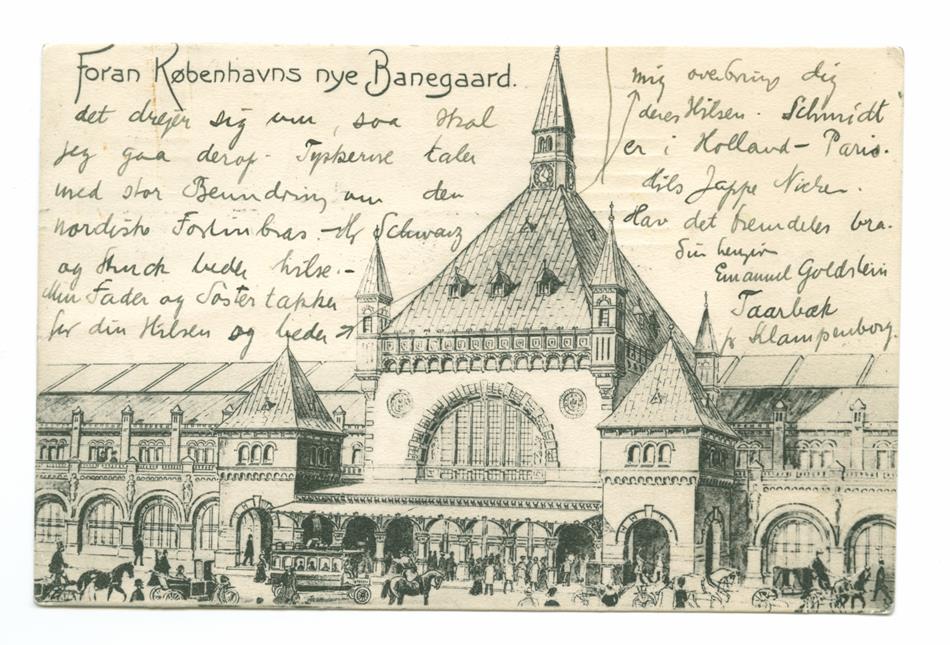 Foran Københavns nye Banegaard.
det drejer sig om, saa skal
jeg gaa derop. Tyskerne taler
med stor Beundring om den
nordiske Fortinbras. Hr Schwarz
og Stuck beder hilse.-
Min Fader og Søster takker
for din Hilsen og beder
mig overbringe dig
deres Hilsen. Schmidt
er i Holland - Paris.
Hils Jappe
Hav det fremdeles bra.
Din hengivne
Emanuel Goldstein
Taarbæk
pr Klampenborg.